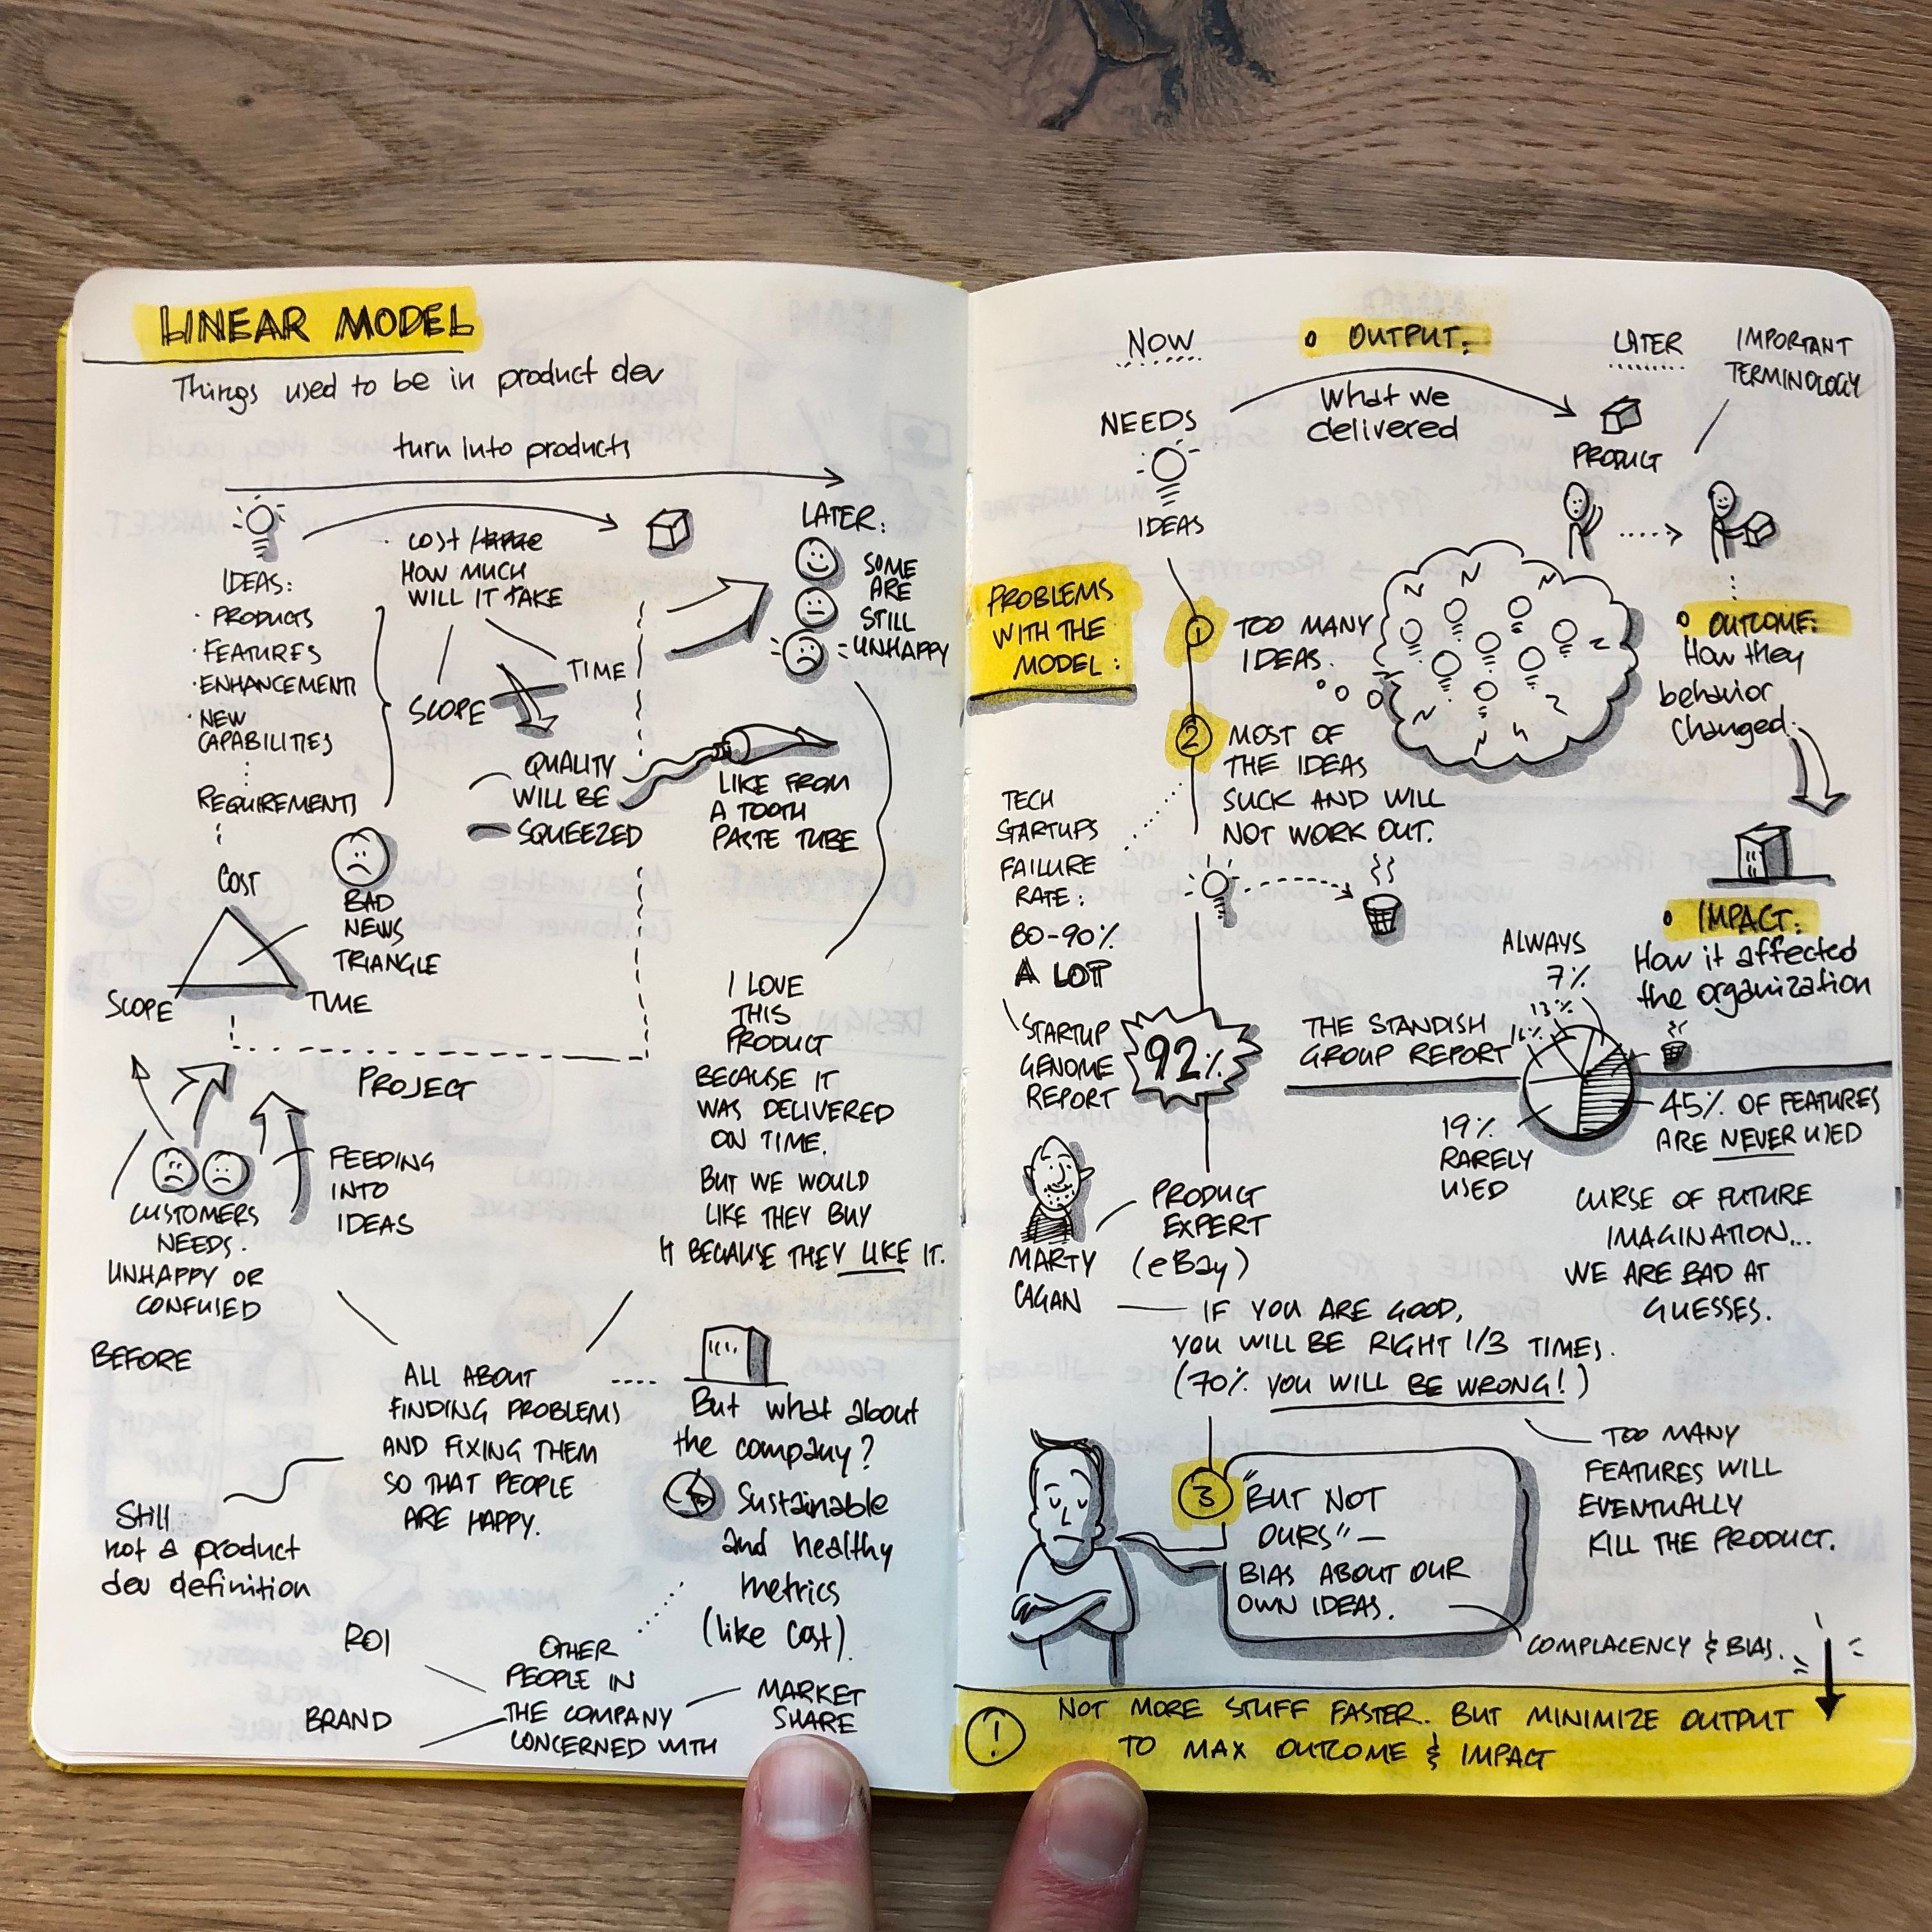 LINEAR MODEL
Things used to be in product dev
turn into products
IDEAS:
· PRODUCTS
· FEATURES
· ENHANCEMENTS
· NEW
CAPABILITIES
REQUIREMENTS
COST /
HOW MUCH
WILL IT TAKE
SCOPE
TIME
QUALITY
WILL BE
SQUEEZED
LIKE FROM
A TOOTH
PASTE TUBE
LATER:
SOME
ARE
STILL
UNHAPPY
COST
SCOPE
TIME
BAD
NEWS
TRIANGLE
PROJECT
CUSTOMERS
NEEDS.
UNHAPPY OR
CONFUSED
FEEDING
INTO
IDEAS
I LOVE
THIS
PRODUCT
BECAUSE IT
WAS DELIVERED
ON TIME.
BUT WE WOULD
LIKE THEY BUY
IT BECAUSE THEY LIKE IT.
BEFORE
ALL ABOUT
FINDING PROBLEMS
AND FIXING THEM
SO THAT PEOPLE
ARE HAPPY.
Still
not a product
dev definition
But what about
the company?
Sustainable
and healthy
metrics
(like cost).
OTHER
PEOPLE IN
THE COMPANY
CONCERNED WITH
ROI
BRAND
MARKET
SHARE
NOW
OUTPUT:
What we
delivered
LATER
IMPORTANT
TERMINOLOGY
NEEDS
IDEAS
PRODUCT
PROBLEMS
WITH THE
MODEL:
1
TOO MANY
IDEAS.
OUTCOME:
How they
behavior
changed.
2
MOST OF
THE IDEAS
SUCK AND WILL
NOT WORK OUT.
TECH
STARTUPS
FAILURE
RATE:
80-90%
A LOT
STARTUP
GENOME
REPORT
92%
IMPACT:
How it affected
the organization
THE STANDISH
GROUP REPORT
ALWAYS
7%
13%
16%
19%
RARELY
USED
45% OF FEATURES
ARE NEVER USED
MARTY
CAGAN
PRODUCT
EXPERT
(eBay)
CURSE OF FUTURE
IMAGINATION...
WE ARE BAD AT
GUESSES.
IF YOU ARE GOOD,
YOU WILL BE RIGHT 1/3 TIMES.
(70% YOU WILL BE WRONG!)
TOO MANY
FEATURES WILL
EVENTUALLY
KILL THE PRODUCT.
3
"BUT NOT
OURS" –
BIAS ABOUT OUR
OWN IDEAS.
COMPLACENCY & BIAS.
! NOT MORE STUFF FASTER. BUT MINIMIZE OUTPUT
TO MAX OUTCOME & IMPACT